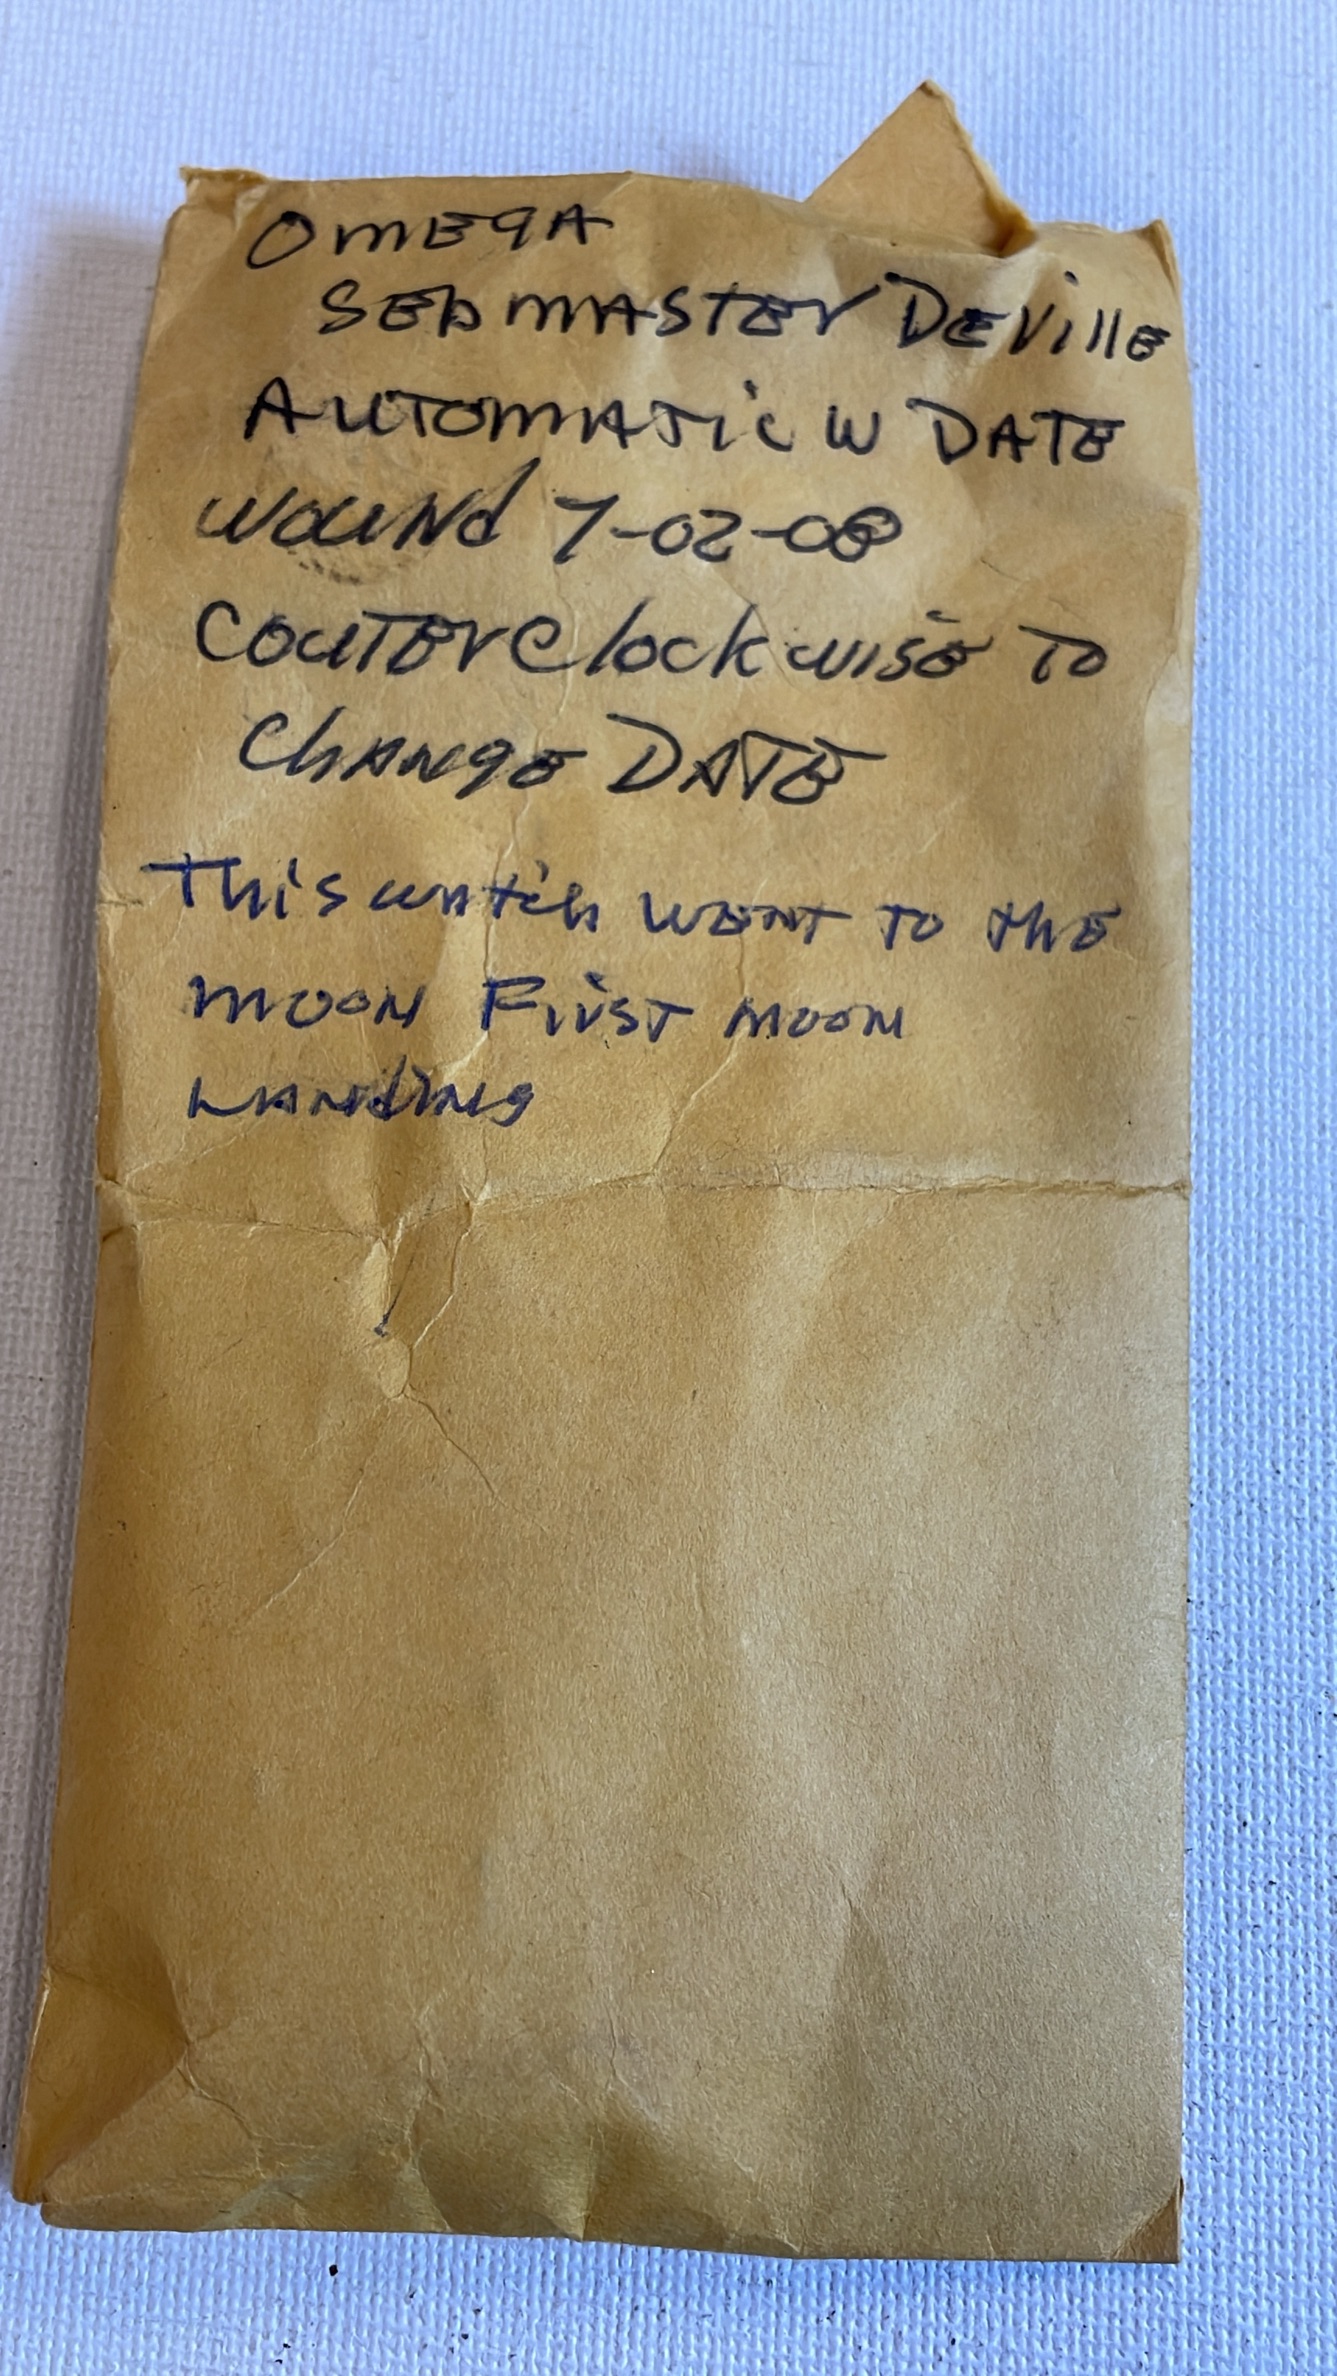 OMEGA
SEAMASTER DEVillE
AUTOMATiC W DATE
WOUNd 7-02-08
COUTERClockwisE TO
ChANgE DATE
This watch WENT TO thE
MOON FirsT MOON
LANding